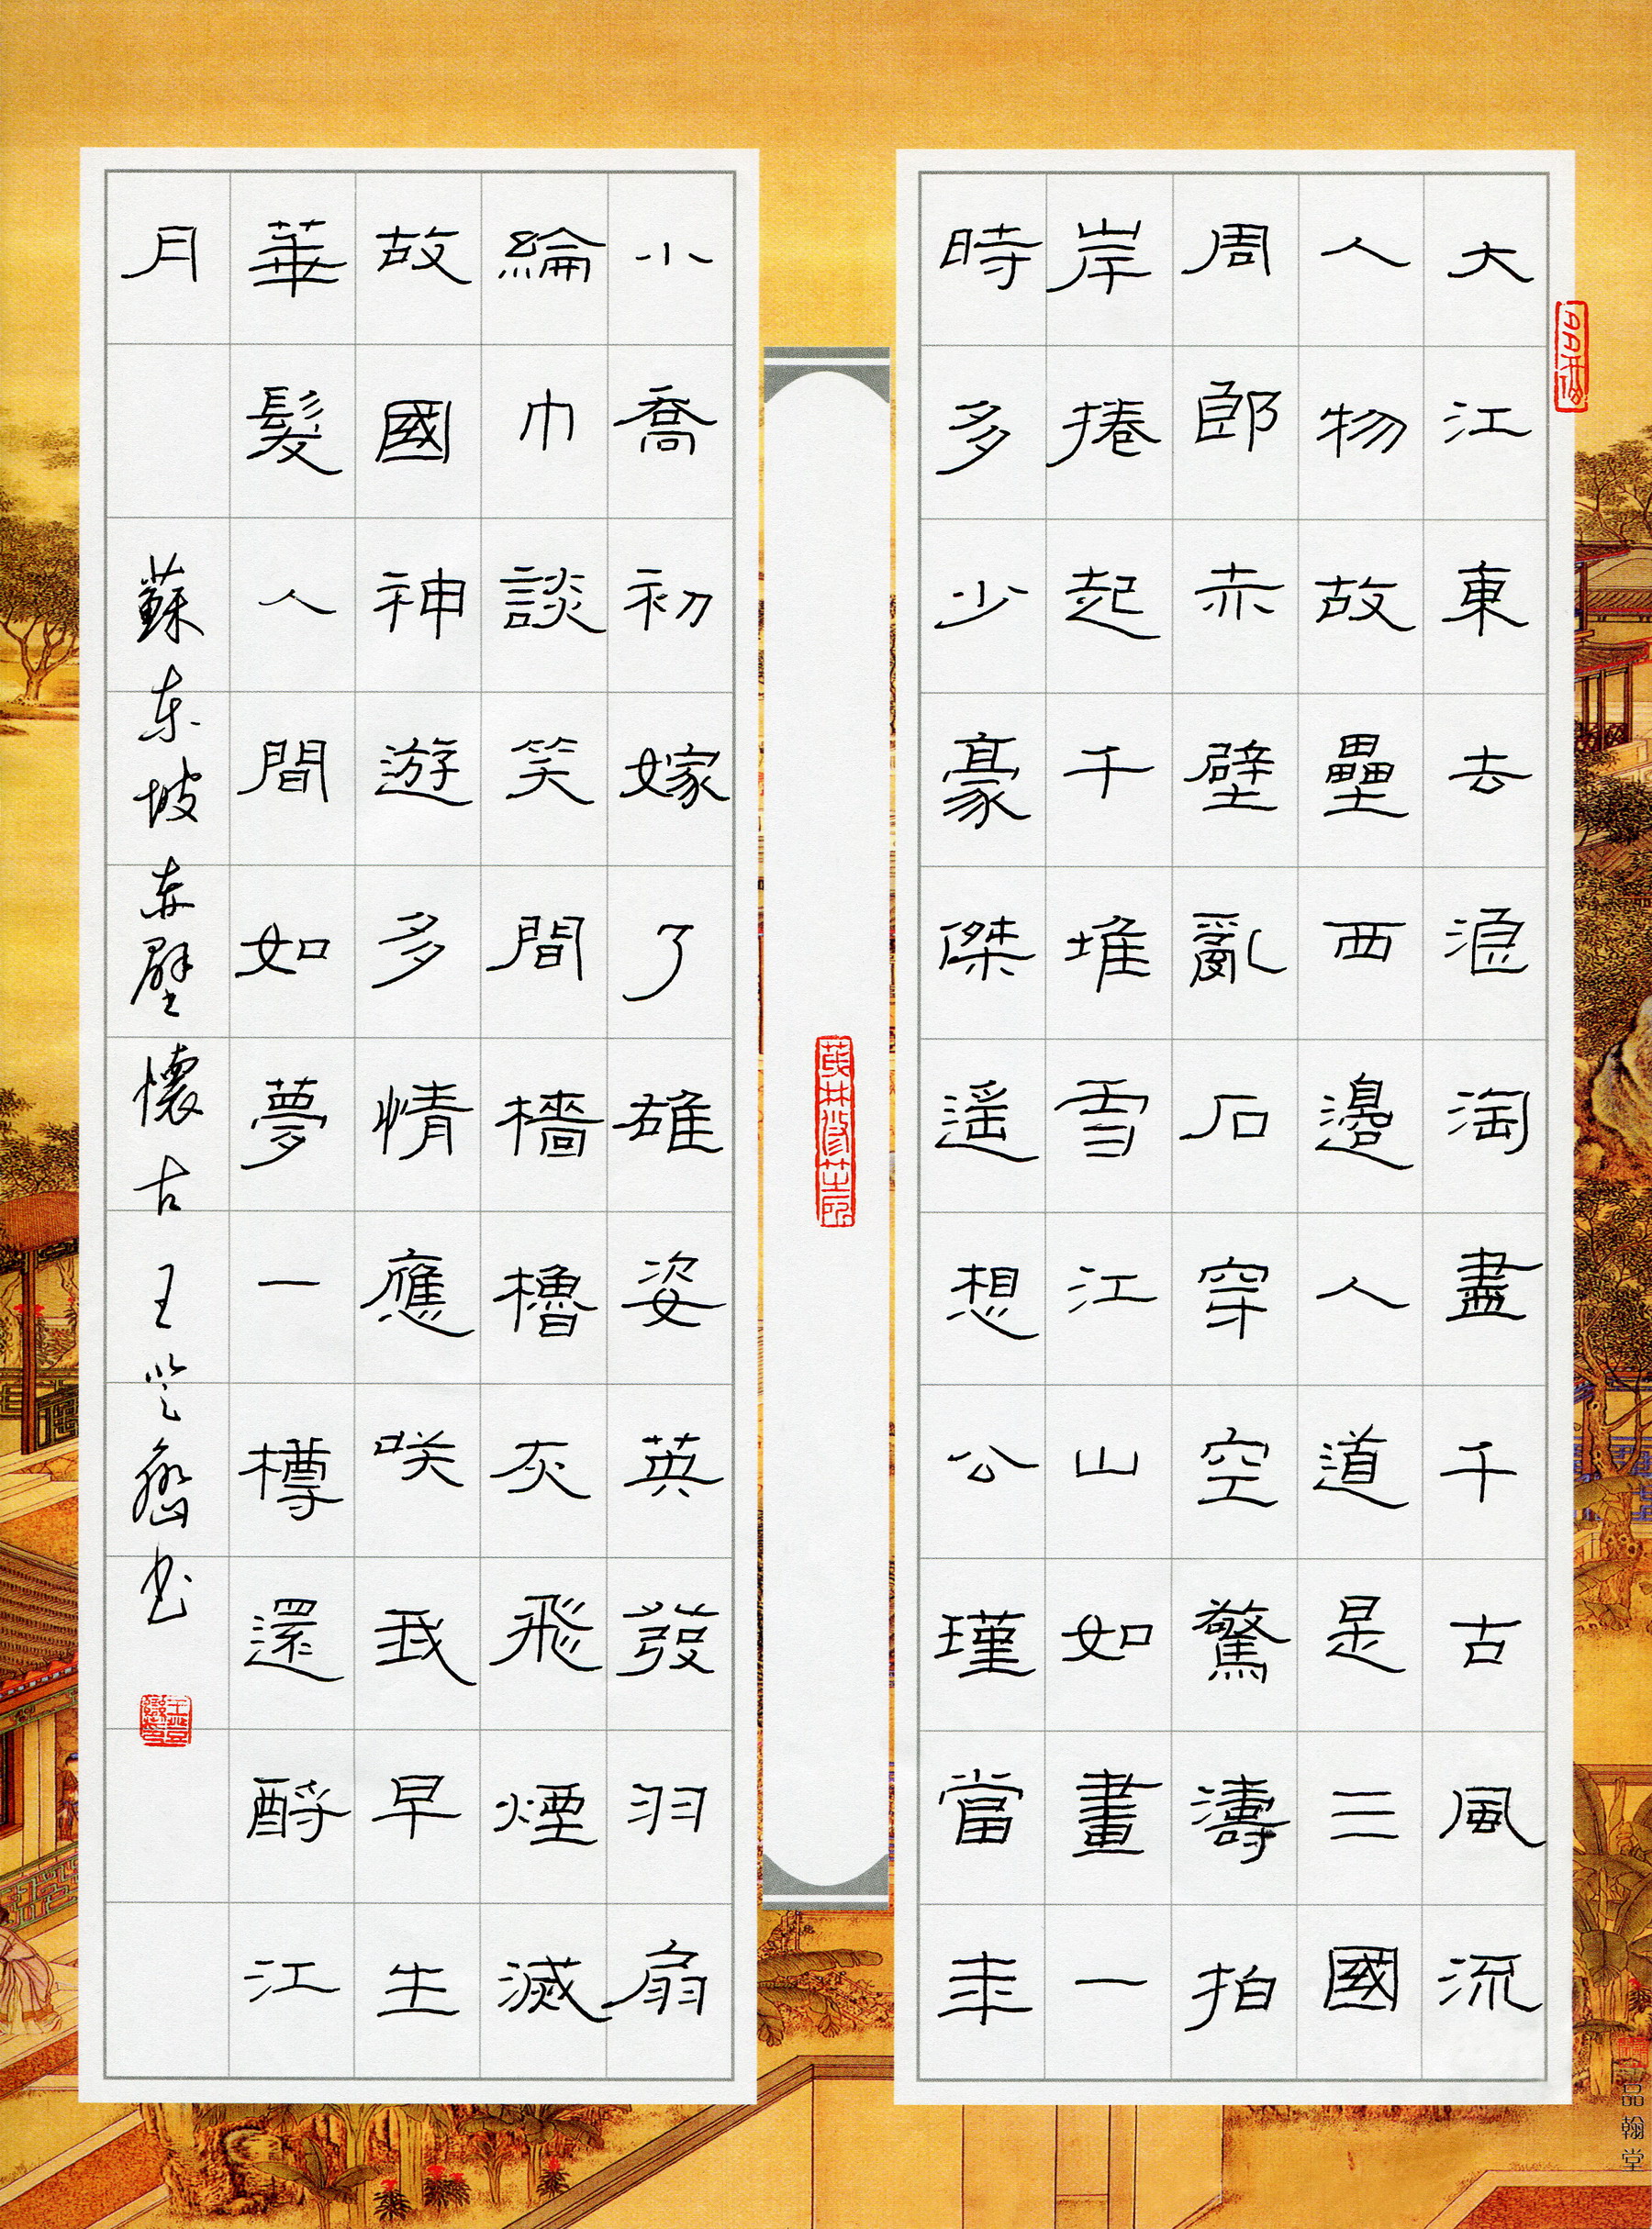 大江東去浪淘盡千古風流
人物故壘西邊人道是三國
周郎赤壁亂石穿空驚濤拍
岸捲起千堆雪江山如畫一
時多少豪傑遥想公瑾當年
小喬初嫁了雄姿英發羽扇
綸巾談笑間檣櫓灰飛煙滅
故國神遊多情應咲我早生
華髮人間如夢一樽還酹江
月
蘇东坡赤壁懷古王登巒书
品翰堂